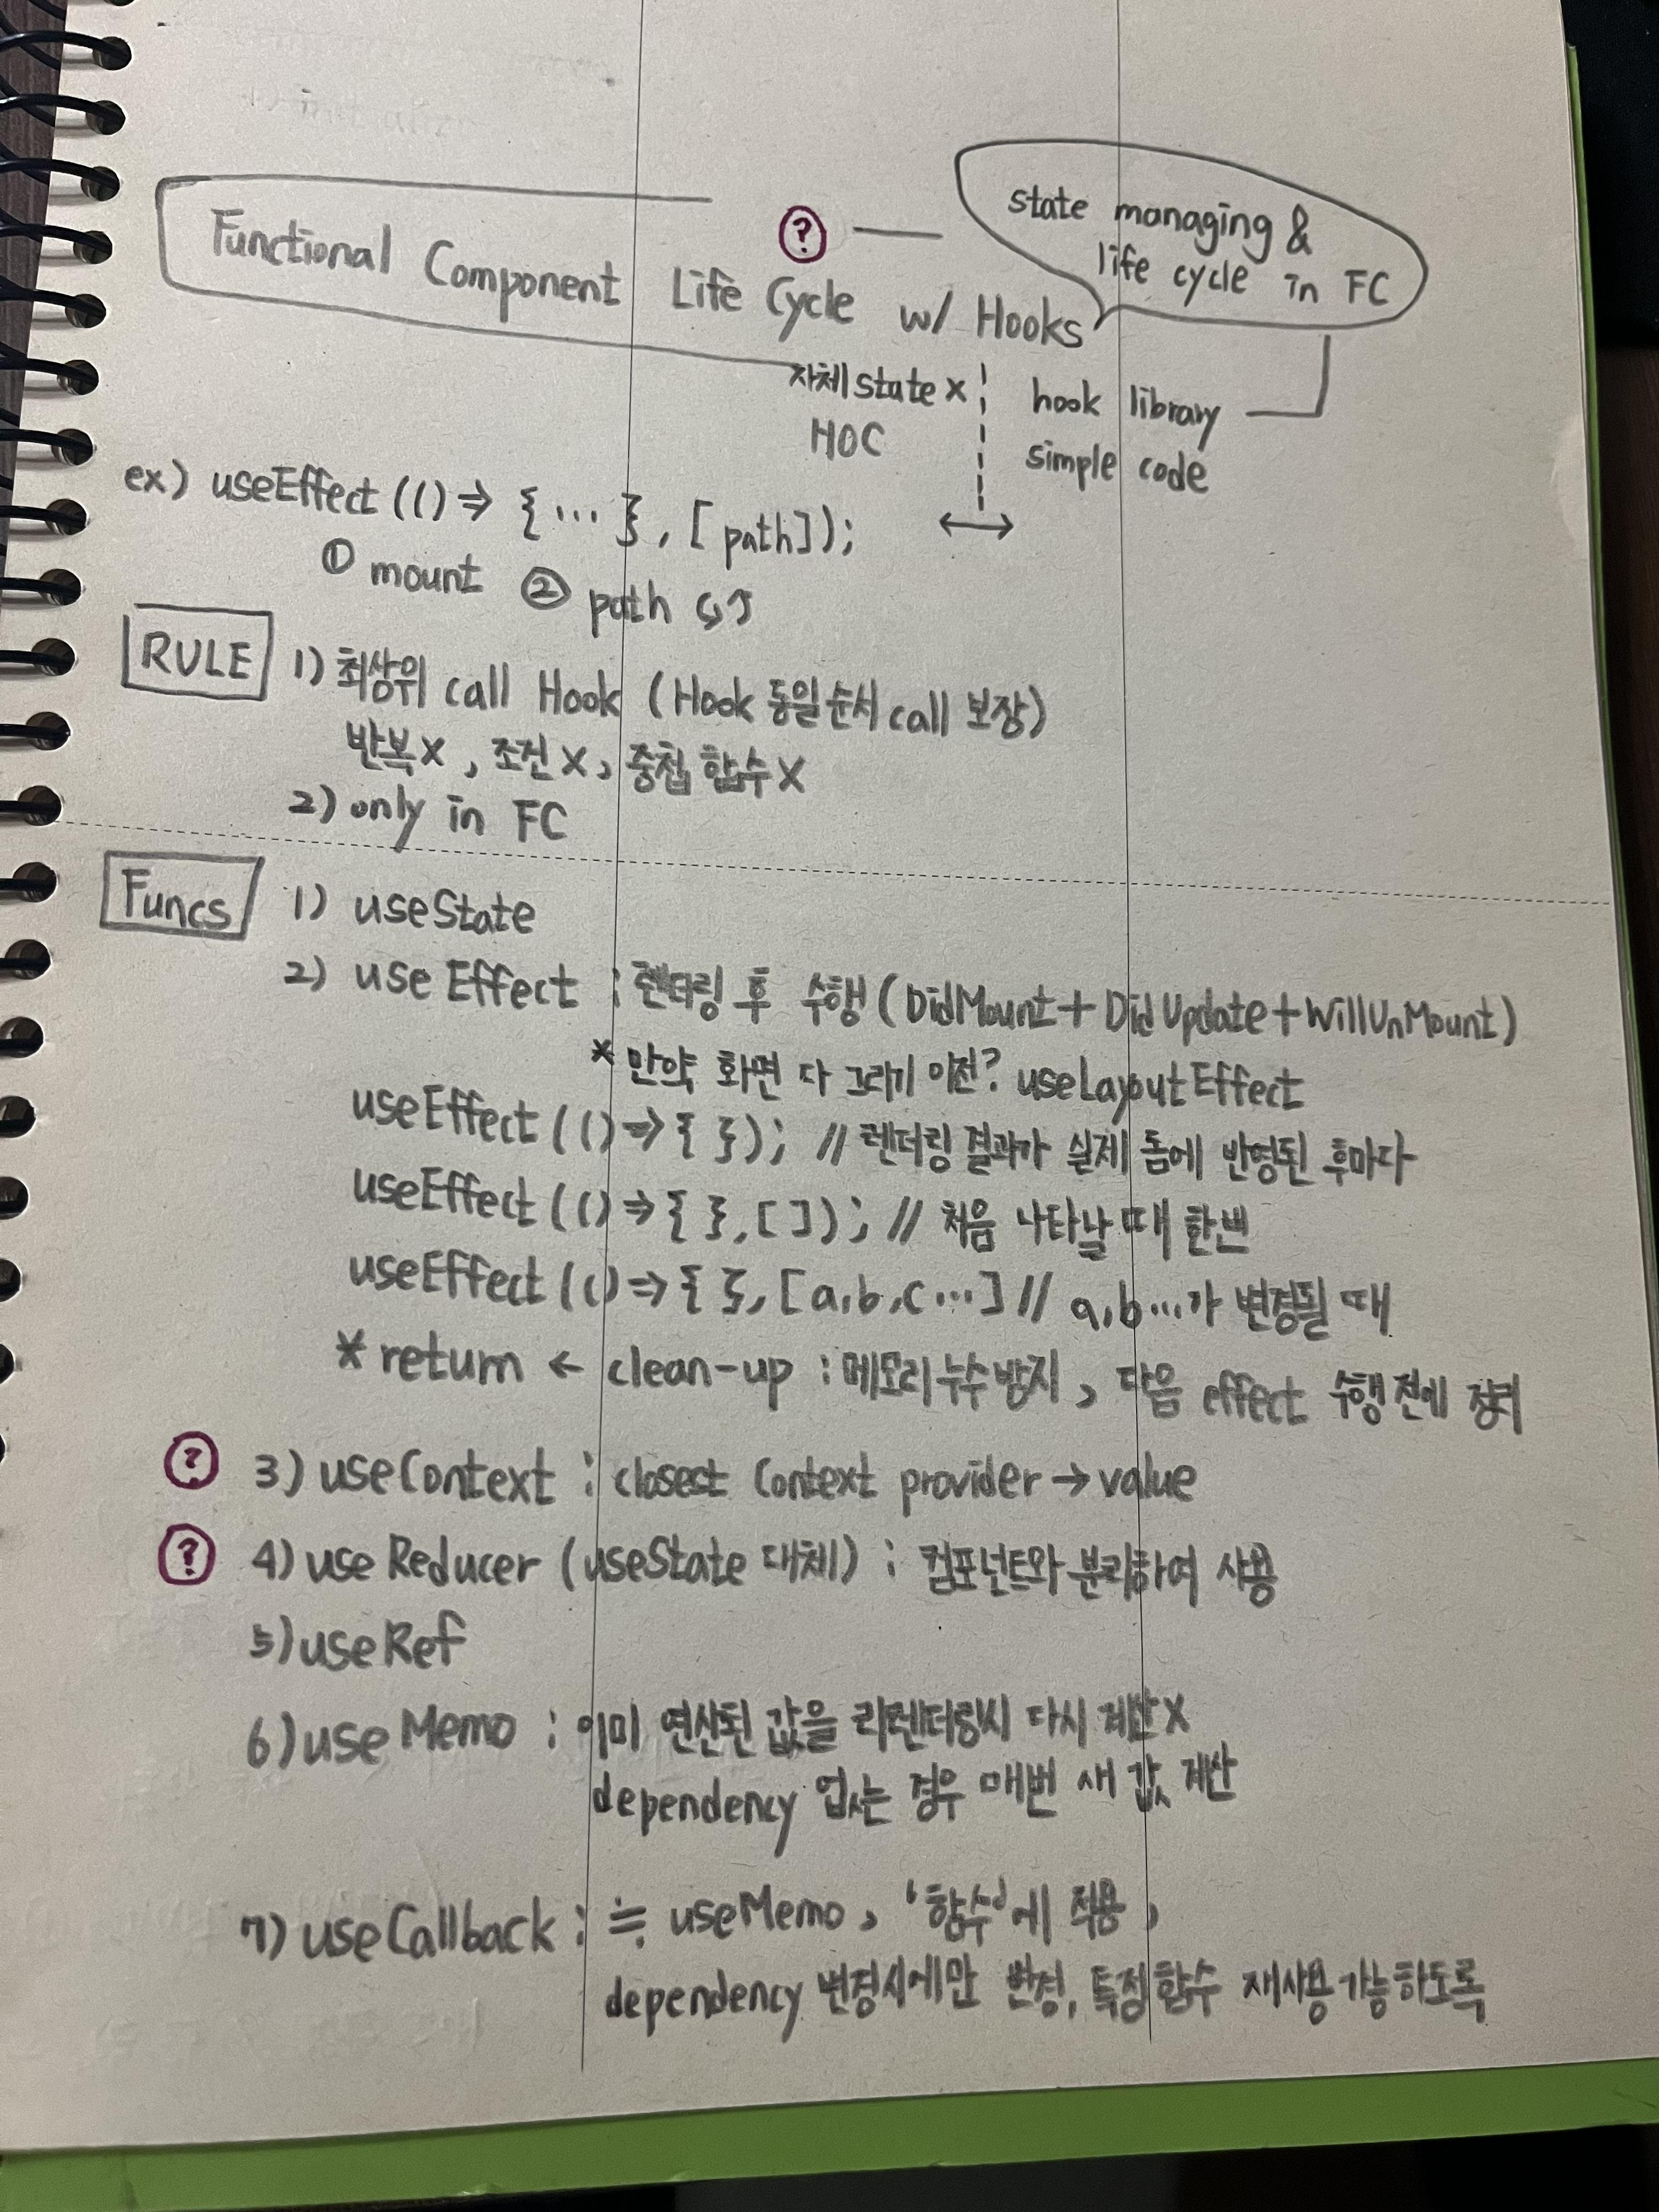 Functional Component Life Cycle w/ Hooks
?
state managing &
life cycle in FC
자체 state x
HOC
hook library
simple code
ex) useEffect(() => { ... }, [path]);
① mount ② path
RULE
1) 최상위 call Hook (Hook 동일 순서 call 보장)
반복 x, 조건 x, 중첩 함수 x
2) only in FC
Funcs
1) useState
2) useEffect : 렌더링 후 수행 (DidMount + DidUpdate + WillUnMount)
* 만약 화면 다 그리기 이전? useLayoutEffect
useEffect(() => { }); // 렌더링 결과가 실제 돔에 반영된 후마다
useEffect(() => { }, [ ]); // 처음 나타날 때 한번
useEffect(() => { }, [a,b,c ...] // a,b...가 변경될 때
* return ← clean-up : 메모리 누수 방지, 다음 effect 수행 전에 정리
? 3) useContext : closest Context provider → value
? 4) useReducer (useState 대체) : 컴포넌트와 분리하여 사용
5) useRef
6) useMemo : 이미 연산된 값을 리렌더링시 다시 계산 X
dependency 없는 경우 매번 새 값 계산
7) useCallback : ≒ useMemo, '함수'에 적용,
dependency 변경시에만 반영, 특정 함수 재사용 가능하도록